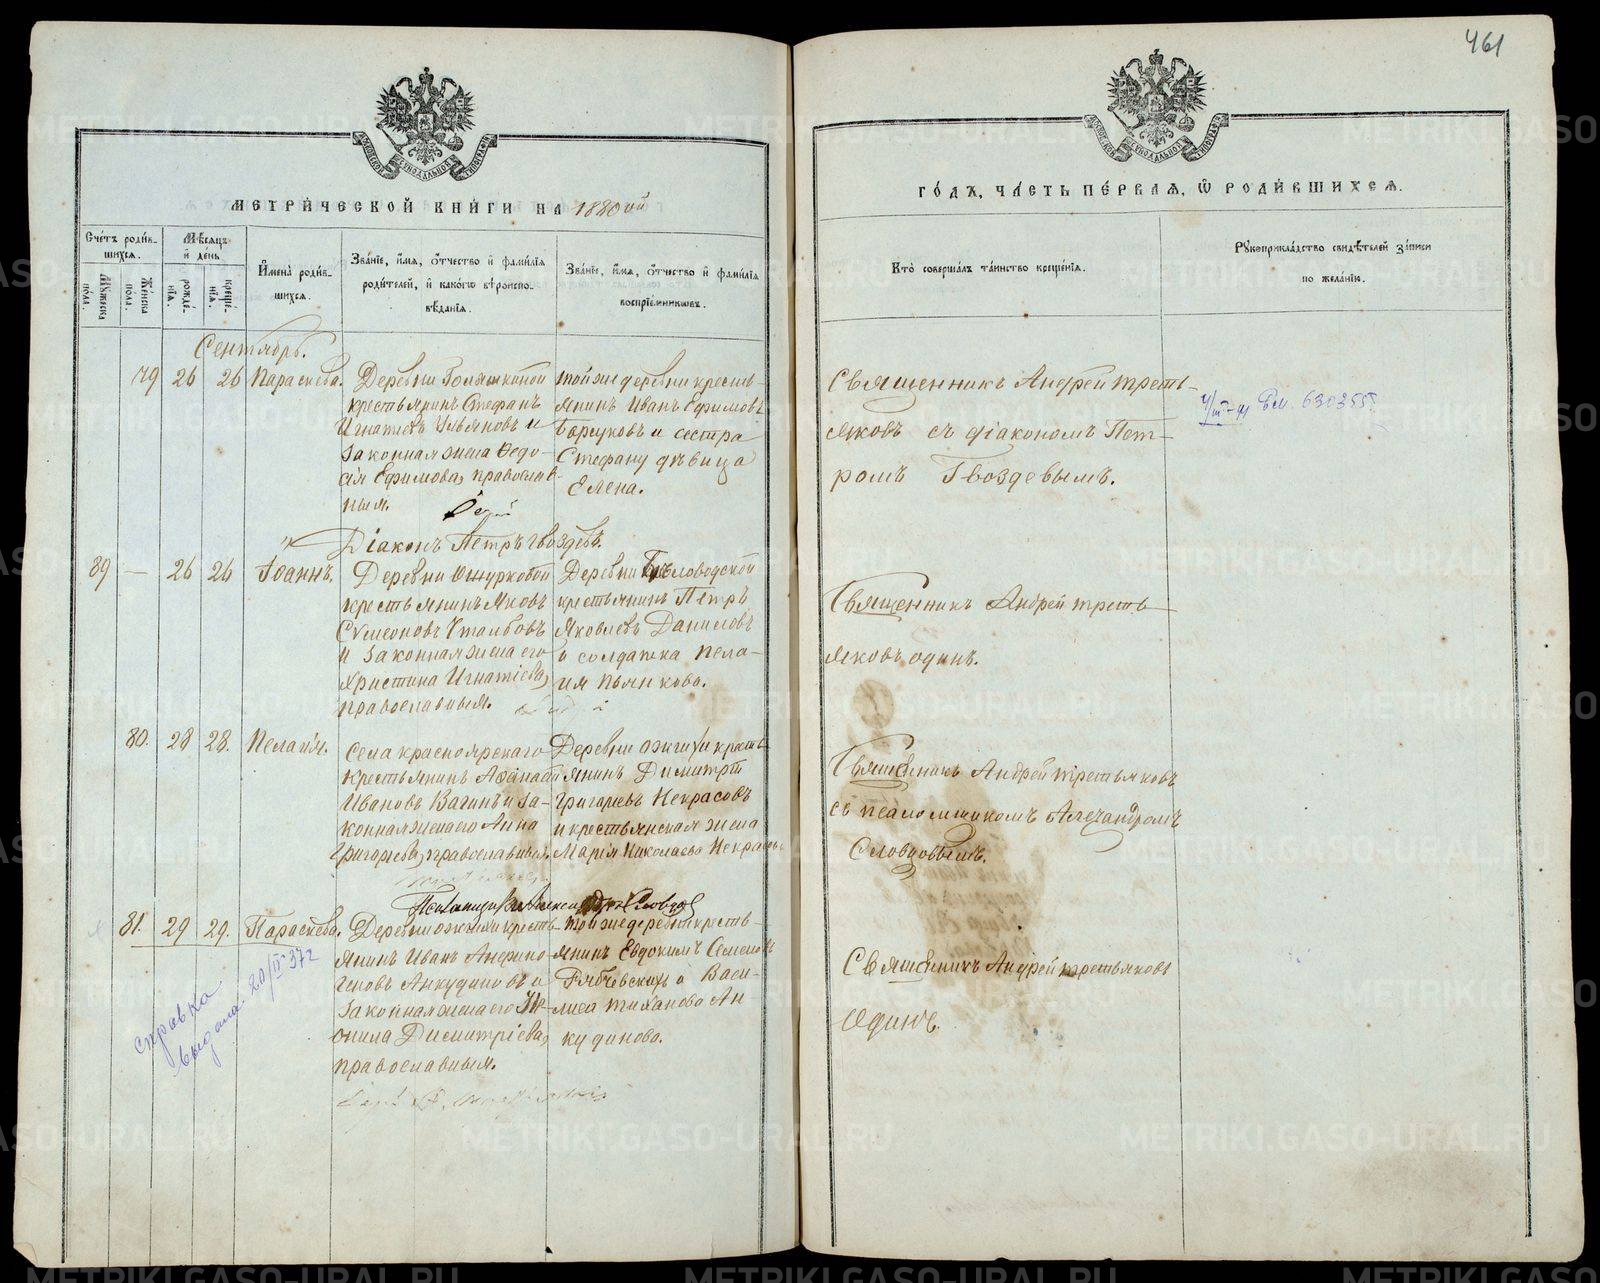 461
МЕТРИЧЕСКОЙ КНИГИ НА 1880ый
ГОДЪ, ЧАСТЬ ПЕРВАЯ, Ѿ РОДИВШИХСЯ.
Счетъ родив-
шихся.
Мужеска
пола.
Женска
пола.
Мѣсяцъ
и день
рожде-
нія.
креще-
нія.
Имена родив-
шихся.
Званіе, имя, отчество и фамилія
родителей, и какого вѣроиспо-
вѣданія.
Званіе, имя, отчество и фамилія
воспріемниковъ.
Кто совершалъ таинство крещенія.
Рукоприкладство свидѣтелей записи
по желанію.
Сентябрь.
79 26 26 Параскева.
Деревни
крестьянинъ Стефанъ
Игнатьевъ Ульяновъ и
законная жена Ѳедо-
сія Ефимова, православ-
ныя.
тойже деревни кресть-
янинъ Иванъ Ефимовъ
Барсуковъ и сестра
Стефану дѣвица
Елена.
Священникъ Андрей Треть-
яковъ съ діакономъ Пет-
ромъ Гвоздевымъ.
630355
Діаконъ Петръ Гвоздевъ.
89 — 26 26 Іоаннъ.
Деревни Ошурковой
крестьянинъ Яковъ
Сѵмеоновъ
и законная жена его
Христина Игнатіева,
православныя.
Деревни Бѣловодской
крестьянинъ Петръ
Яковлевъ Даниловъ
и солдатка Пела-
гия Пьянкова.
Священникъ Андрей Треть-
яковъ одинъ.
80. 28 28. Пелагія.
Села Красноярскаго
крестьянинъ Аѳанасій
Ивановъ Вагинъ и за-
конная жена его Анна
Григорьева, православныя.
Деревни Ожгихи кресть-
янинъ Димитрій
Григорьевъ Некрасовъ
и крестьянская жена
Марія Николаева Некрасова
Священникъ Андрей Третьяковъ
съ псаломщикомъ Александромъ
Словцовымъ.
Псаломщикъ Александръ Словцовъ
81. 29 29. Параскева.
Деревни Ожгихи кресть-
янинъ Иванъ Андроно-
Анкудиновъ и
законная жена его
Димитріева,
православныя.
тойже деревни кресть-
янинъ Евдокимъ Семеновъ
и Васи-
лиса Тиханова Ан
кудинова.
Священникъ Андрей Третьяковъ
Одинъ.
справка
выдана 20/II 37г